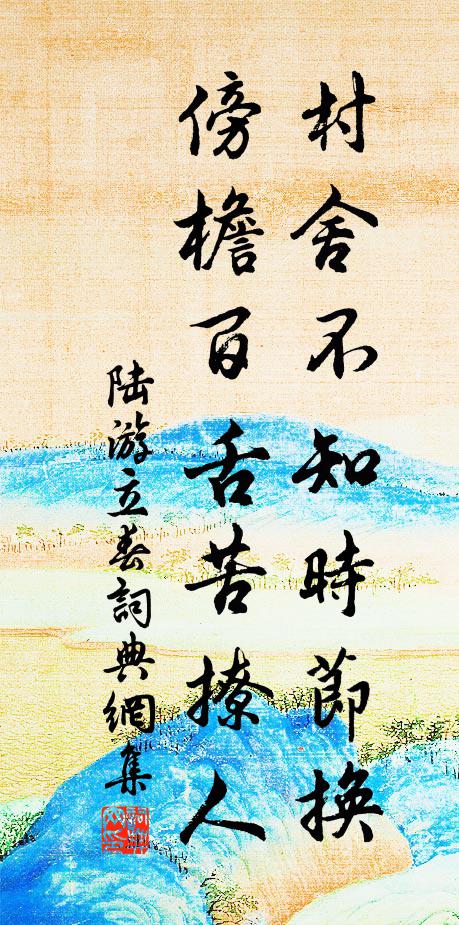 村舍不知時節換
傍檐百舌苦撩人
陆游立春詞典網集